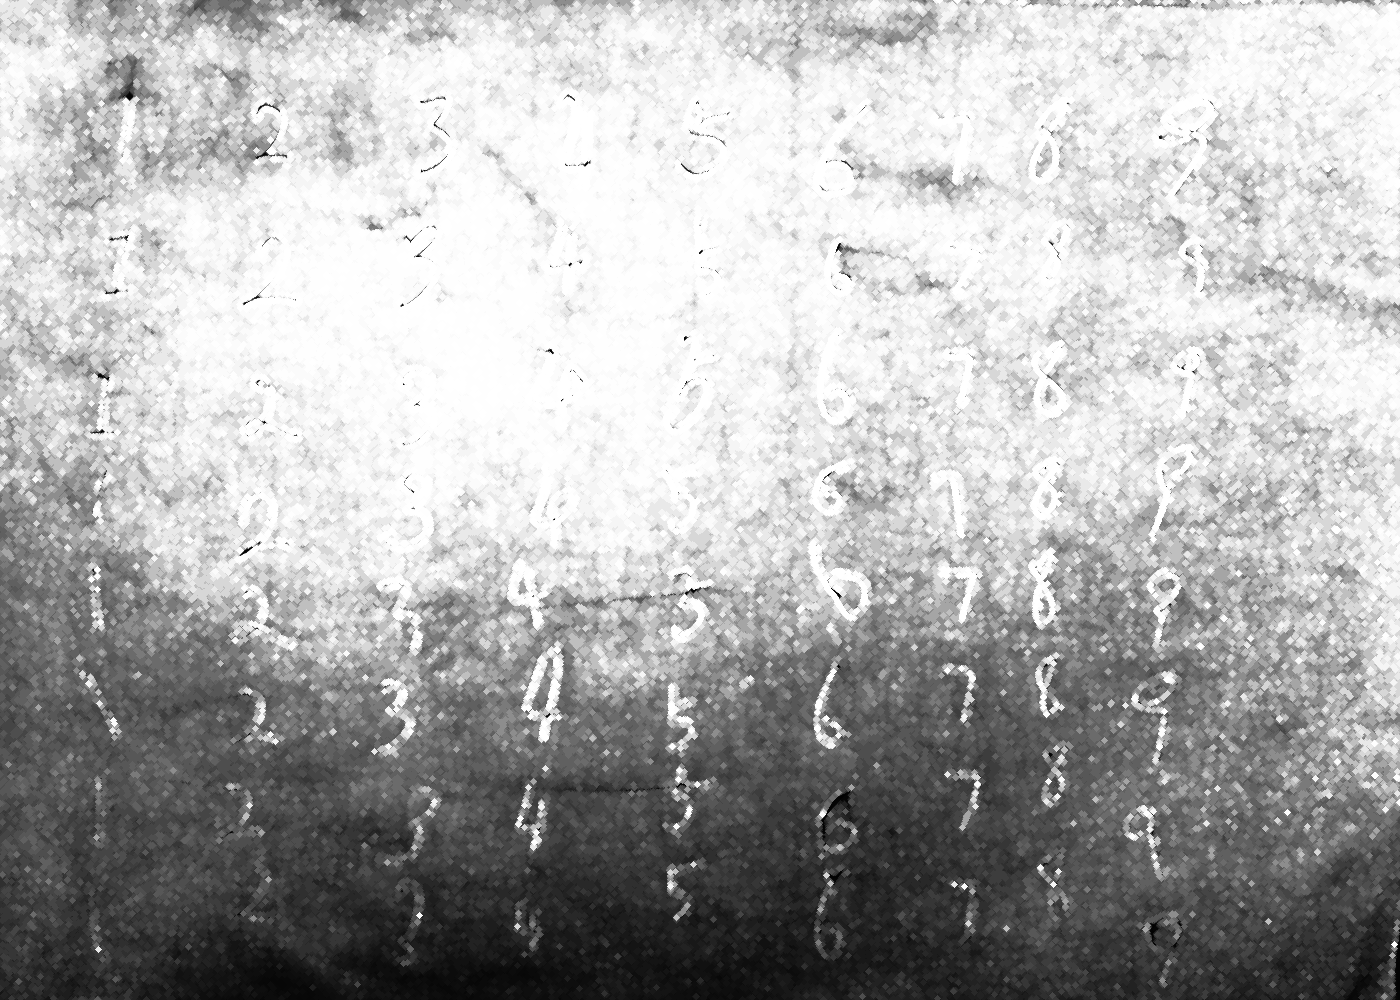 1 2 3 4 5 6 7 8 9
1 2 3 4 5 6 7 8 9
1 2 3 5 6 7 8 9
1 2 3 4 5 6 7 8 9
1 2 3 4 5 6 7 8 9
1 2 3 4 5 6 7 8 9
1 2 3 4 5 6 7 8 9
1 2 3 4 5 6 7 8 9